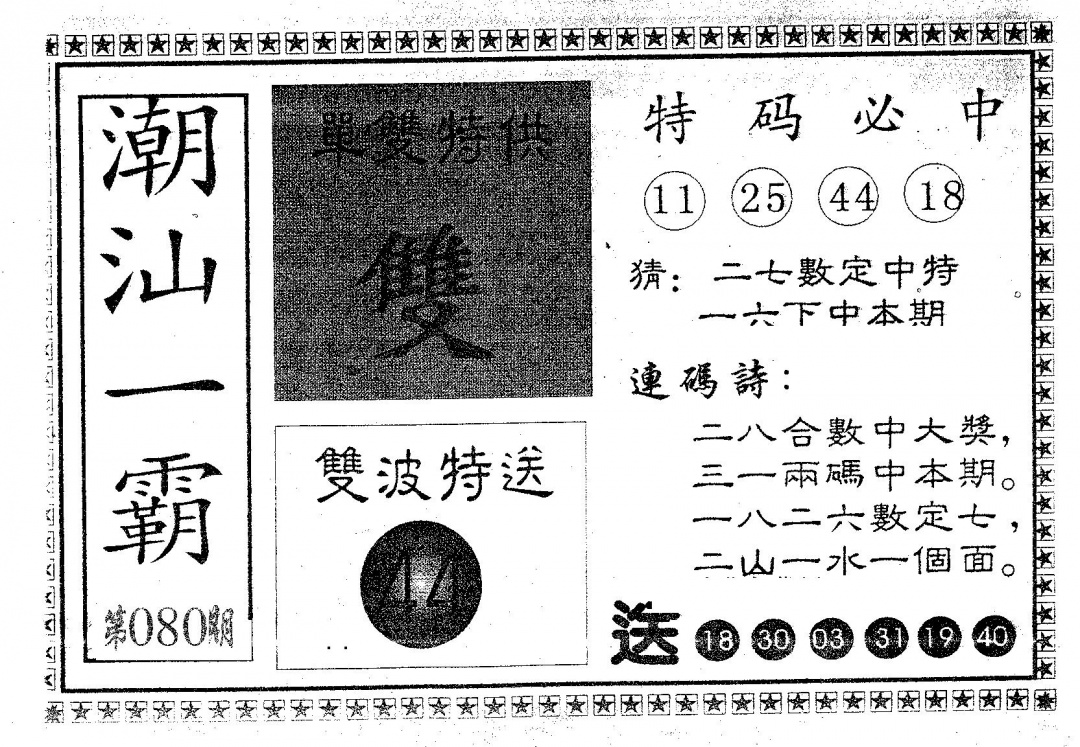 潮汕一霸
第080期
單雙特供
雙
雙波特送
44
特码必中
11 25 44 18
猜：二七數定中特
一六下中本期
連碼詩：
二八合數中大獎，
三一兩碼中本期。
一八二六數定七，
二山一水一個面。
送 18 30 03 31 19 40